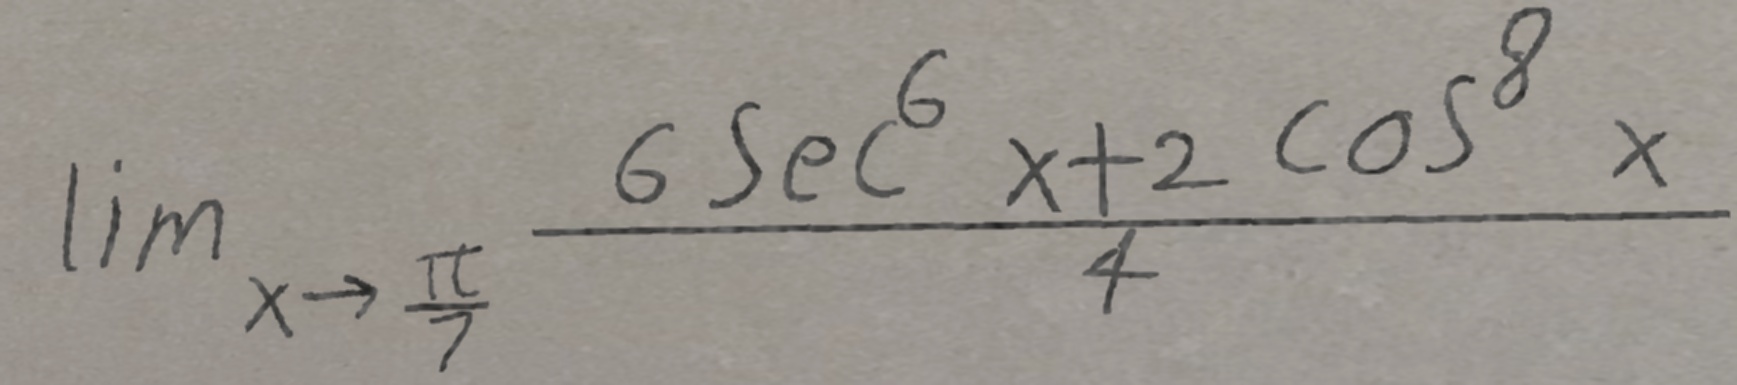 \lim_{x \to \frac{\pi}{7}} \frac{6 \sec^6 x + 2 \cos^8 x}{4}